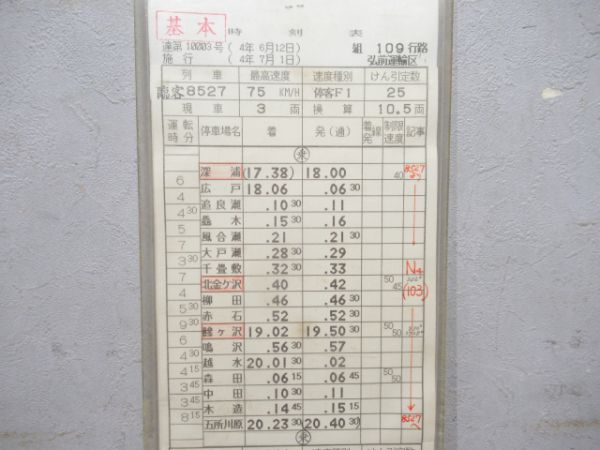 基本
時刻表
達第10003号(4年6月12日) 組 109行路
施行 (4年7月1日) 弘前運輸区
列車 最高速度 速度種別 けん引定数
臨客8527 75 KM/H 停客F1 25
現車 3両 換算 10.5両
運転時分 停車場名 着 発(通) 着発線 制限速度 記事
乗
深浦 (17.38) 18.00 40 8527より
6
広戸 18.06 .06 30
4
追良瀬 .10 30 .11
4 30
轟木 .15 30 .16
5
風合瀬 .21 .21 30
7
大戸瀬 .28 30 .29
3 30
千畳敷 .32 30 .33
7
北金ケ沢 .40 .42 50 45 (103)
4
柳田 .46 .46 30
5 30
赤石 .52 .52 30
9 30
鰺ヶ沢 19.02 19.50 30 50 50
6
鳴沢 .56 30 .57
4 30
越水 20.01 30 .02
4 15
森田 .06 15 .06 45 50 50
3 45
中田 .10 30 .11
3 45
木造 .14 45 .15 15
8 15
五所川原 20.23 30 (20.40 30) 8527へ
乗